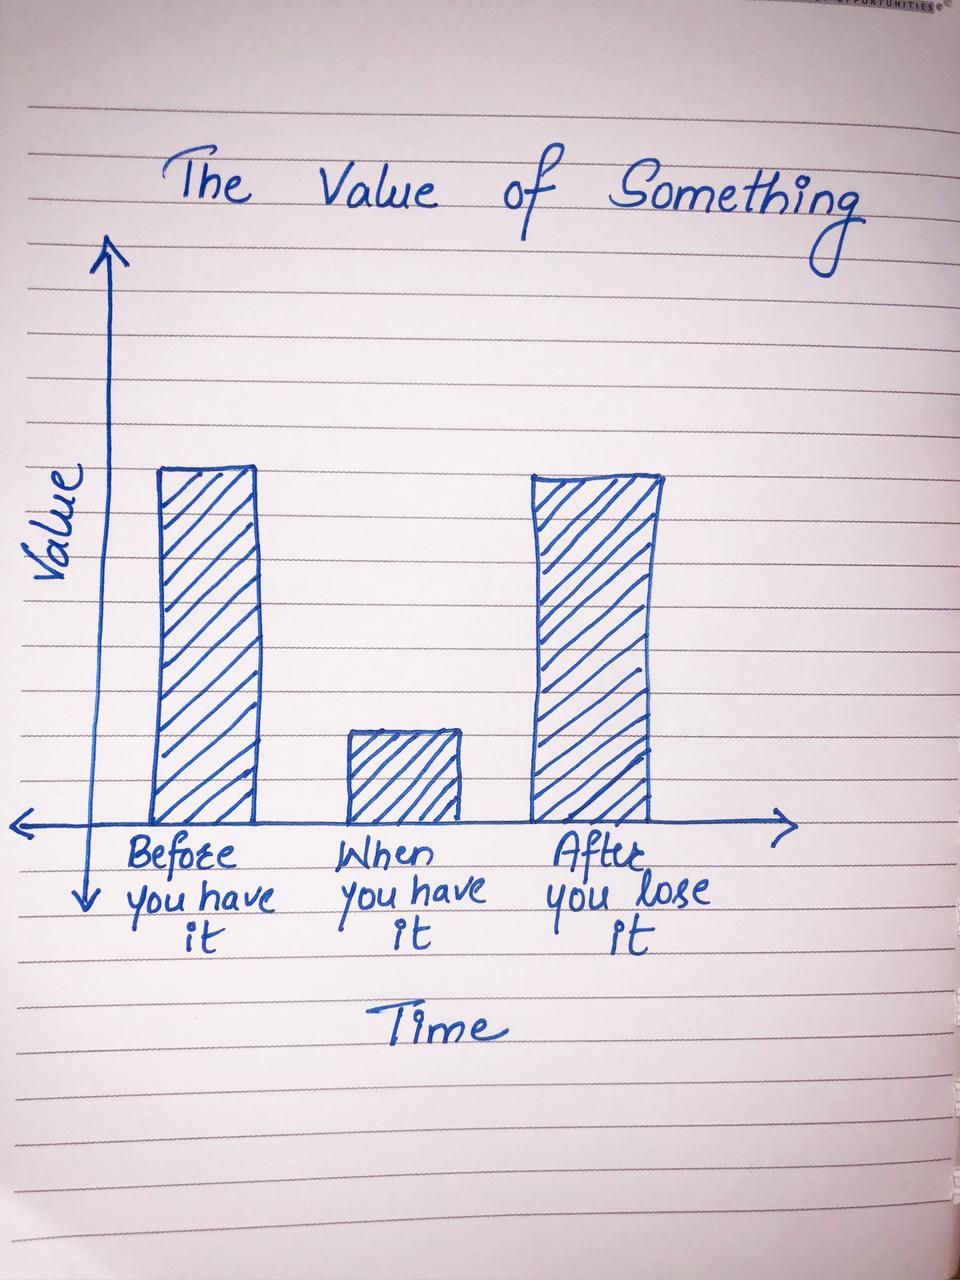 OPPORTUNITIES
The Value of Something
Value
Before
you have
it
When
you have
it
After
you lose
it
Time